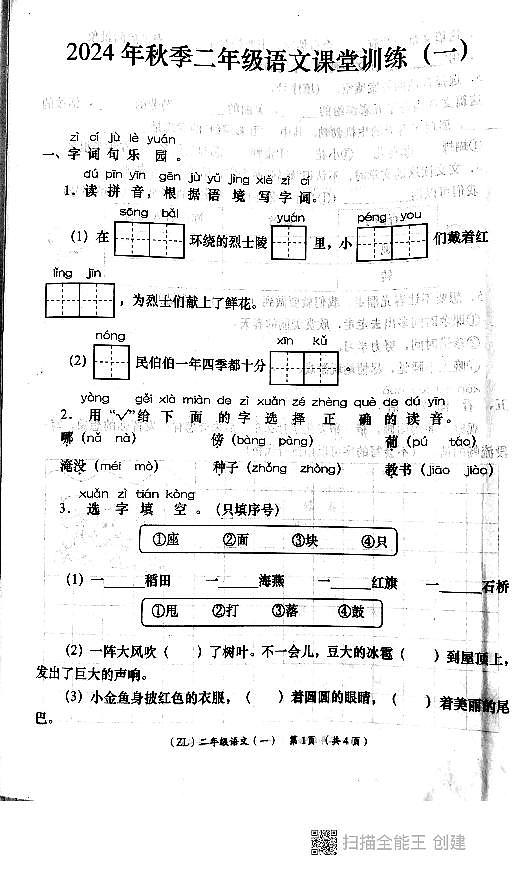 2024年秋季二年级语文课堂训练（一）
zì cí jù lè yuán
一、字词句乐园。
dú pīn yīn gēn jù yǔ jìng xiě zì cí
1. 读拼音，根据语境写字词。
sōng bǎi yuán péng you
（1）在 环绕的烈士陵 里，小 们戴着红
lǐng jīn
，为烈士们献上了鲜花。
nóng xīn kǔ
（2） 民伯伯一年四季都十分 。
yòng gěi xià miàn de zì xuǎn zé zhèng què de dú yīn
2. 用“√”给下面的字选择正确的读音。
哪（nǎ nà） 傍（bàng pàng） 葡（pú táo）
淹没（méi mò） 种子（zhǒng zhòng） 教书（jiāo jiào）
xuǎn zì tián kòng
3. 选字填空。（只填序号）
①座 ②面 ③块 ④只
（1）一____稻田 一____海燕 一____红旗 一____石桥
①甩 ②打 ③落 ④鼓
（2）一阵大风吹（ ）了树叶。不一会儿，豆大的冰雹（ ）到屋顶上，
发出了巨大的声响。
（3）小金鱼身披红色的衣服，（ ）着圆圆的眼睛，（ ）着美丽的尾
巴。
（ZL）二年级语文（一） 第1页（共4页）
扫描全能王 创建